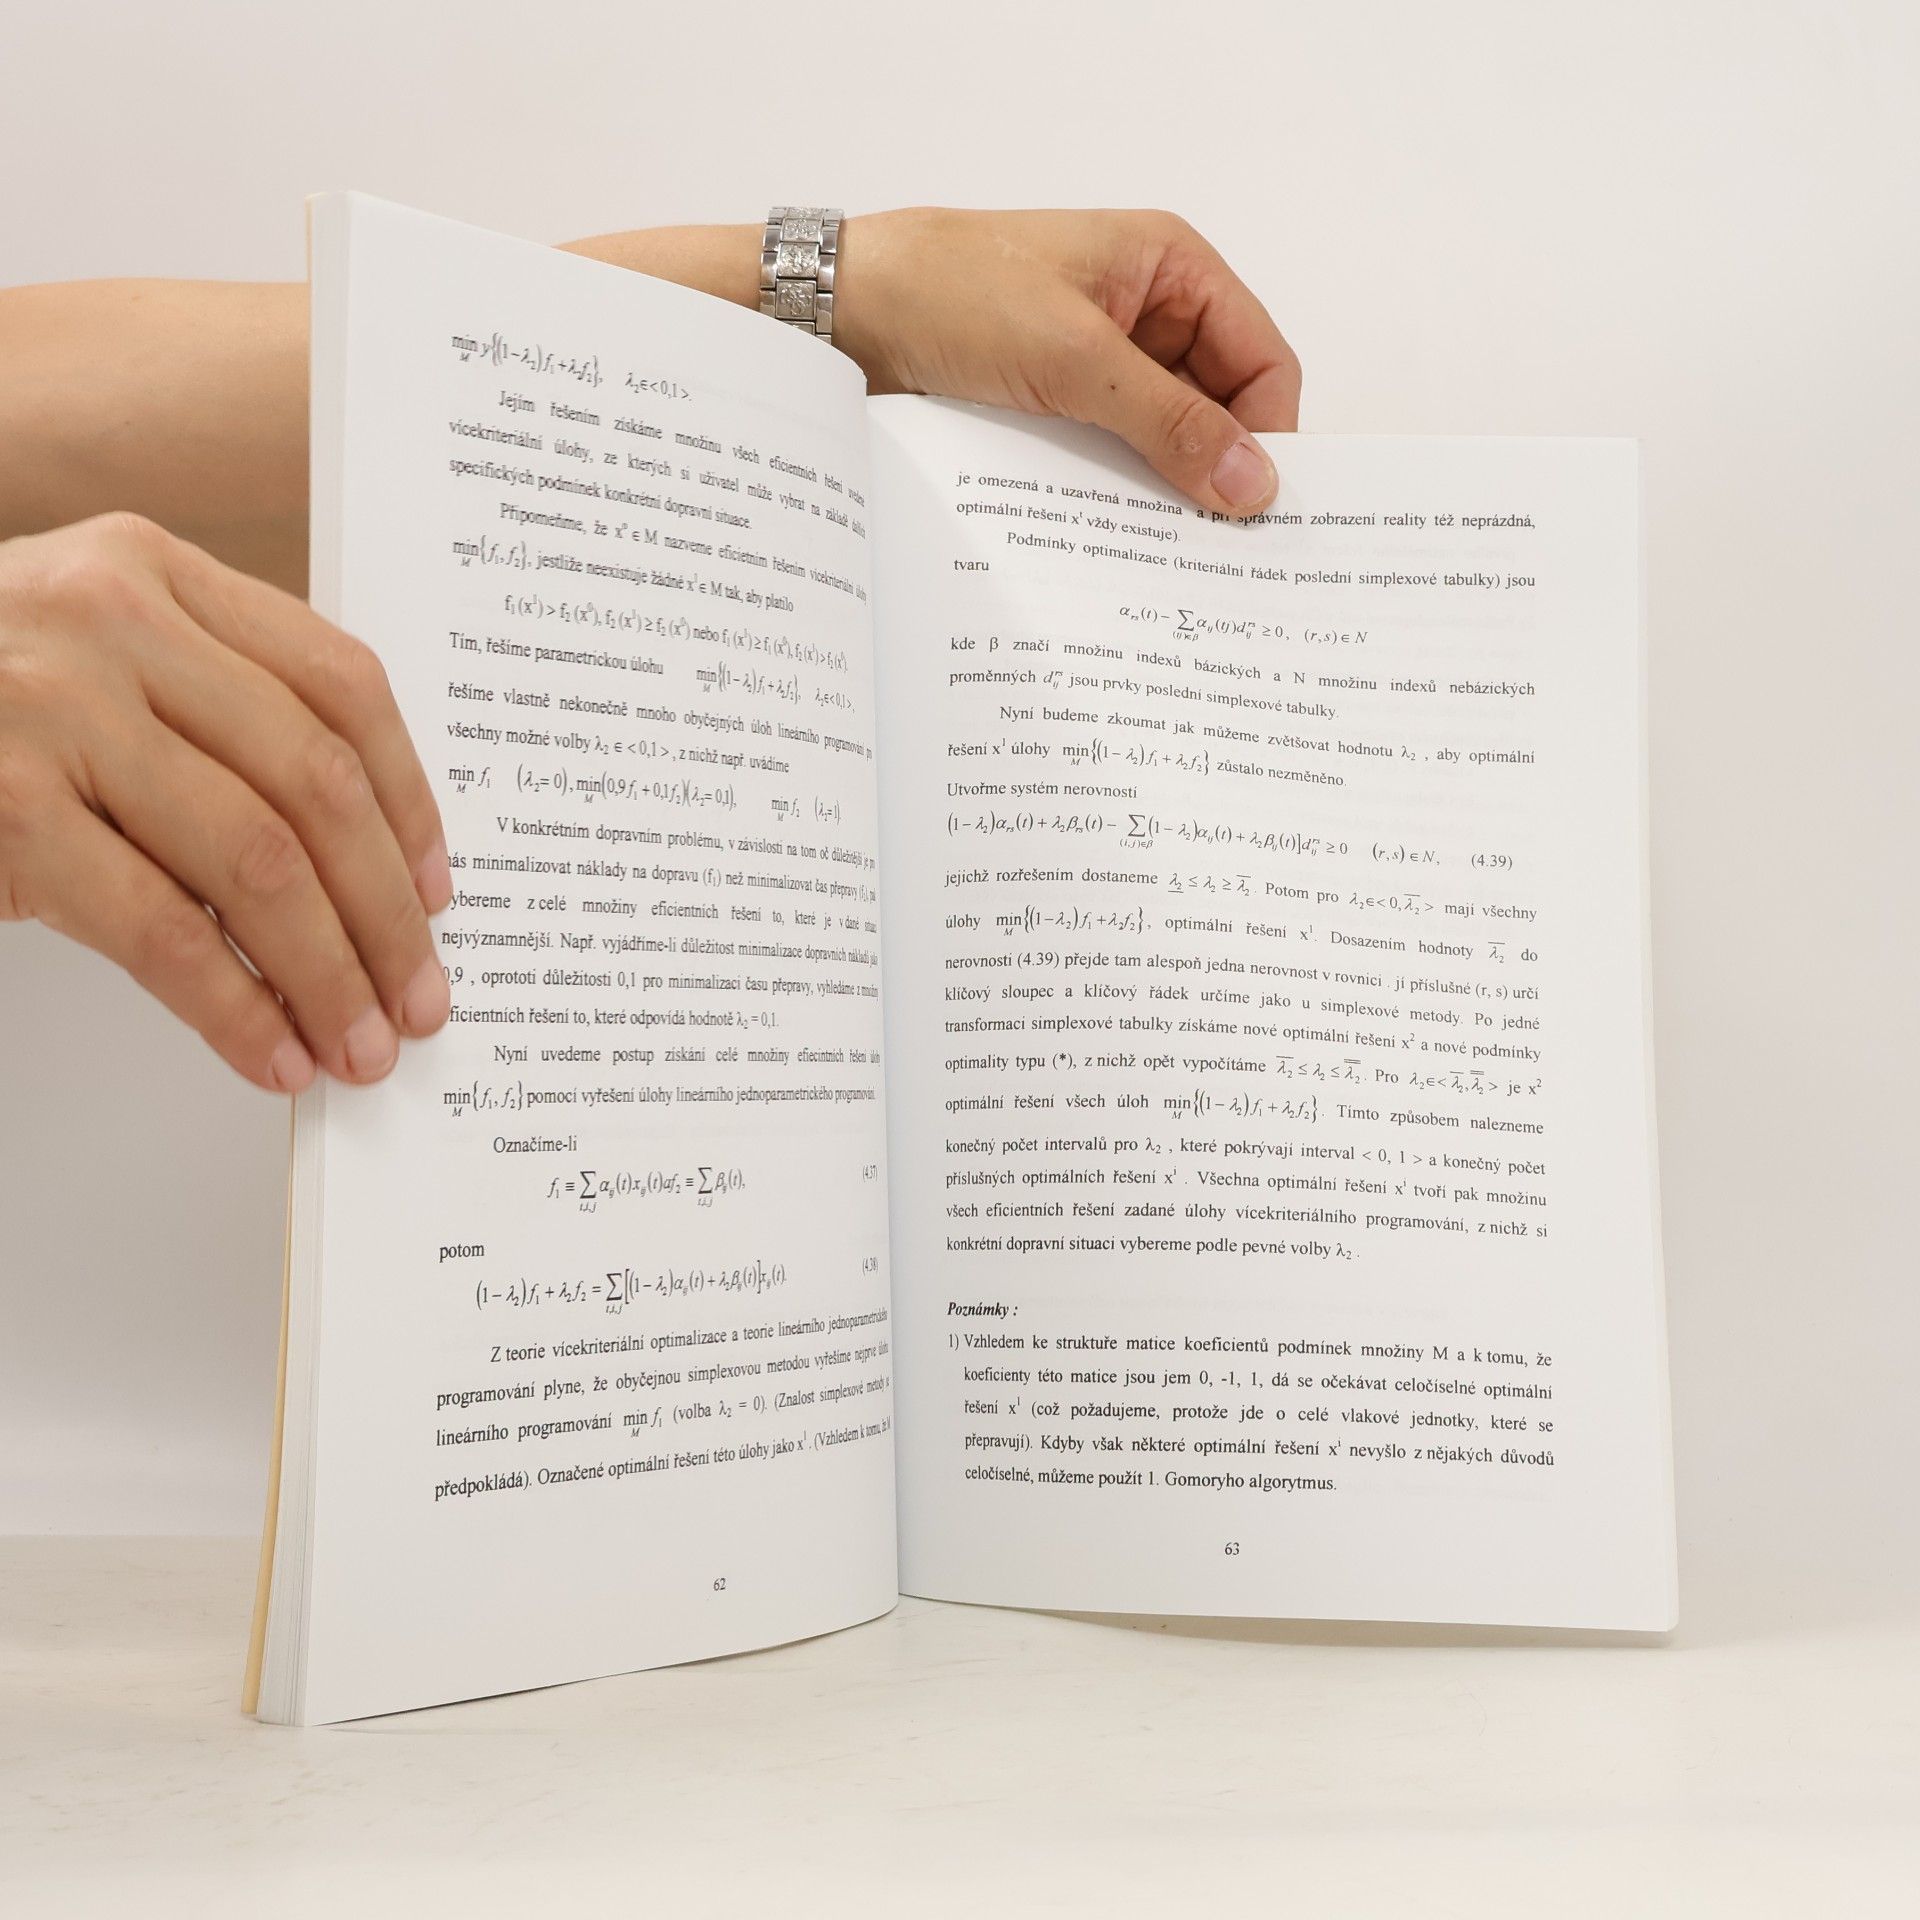 min y{(1−λ₂)f₁+λ₂f₂}, λ₂∈<0,1>.
M
Jejím řešením získáme množinu všech eficientních řešení uvedené
vícekriteriální úlohy, ze kterých si uživatel může vybrat na základě dalších
specifických podmínek konkrétní dopravní situace.
Připomeňme, že x⁰ ∈ M nazveme eficietním řešením vícekriteriální úlohy
min{f₁, f₂}, jestliže neexistuje žádné x¹ ∈ M tak, aby platilo
M
f₁(x¹) > f₂(x⁰), f₂(x¹) ≥ f₂(x⁰) nebo f₁(x¹) ≥ f₁(x⁰), f₂(x¹) > f₂(x⁰).
Tím, řešíme parametrickou úlohu min{(1−λ₂)f₁+λ₂f₂}, λ₂∈<0,1>,
M
řešíme vlastně nekonečně mnoho obyčejných úloh lineárního programování pro
všechny možné volby λ₂ ∈ <0,1>, z nichž např. uvádíme
min f₁ (λ₂= 0), min(0,9f₁ + 0,1f₂)(λ₂= 0,1), min f₂ (λ₂=1).
M M M
V konkrétním dopravním problému, v závislosti na tom oč důležitější je pro
nás minimalizovat náklady na dopravu (f₁) než minimalizovat čas přepravy (f₂), pak
vybereme z celé množiny eficientních řešení to, které je v dané situaci
nejvýznamnější. Např. vyjádříme-li důležitost minimalizace dopravních nákladů jako
0,9 , oprototi důležitosti 0,1 pro minimalizaci času přepravy, vyhledáme z množiny
eficientních řešení to, které odpovídá hodnotě λ₂ = 0,1.
Nyní uvedeme postup získání celé množiny efiecintních řešení úlohy
min{f₁, f₂} pomocí vyřešení úlohy lineárního jednoparametrického programování.
M
Označíme-li
f₁ ≡ ∑ αᵢⱼ(t)xᵢⱼ(t)af₂ ≡ ∑ βᵢⱼ(t), (4.37)
t,i,j t,i,j
potom
(1−λ₂)f₁ + λ₂f₂ = ∑[(1−λ₂)αᵢⱼ(t) + λ₂βᵢⱼ(t)]xᵢⱼ(t). (4.38)
t,i,j
Z teorie vícekriteriální optimalizace a teorie lineárního jednoparametrického
programování plyne, že obyčejnou simplexovou metodou vyřešíme nejprve úlohu
lineárního programování min f₁ (volba λ₂ = 0). (Znalost simplexové metody se
M
předpokládá). Označené optimální řešení této úlohy jako x¹. (Vzhledem k tomu, že M
62
je omezená a uzavřená množina a při správném zobrazení reality též neprázdná,
optimální řešení xᵗ vždy existuje).
Podmínky optimalizace (kriteriální řádek poslední simplexové tabulky) jsou
tvaru
αᵣₛ(t) − ∑ αᵢⱼ(tj)dᵢⱼʳˢ ≥ 0, (r,s)∈N
(ij)∈β
kde β značí množinu indexů bázických a N množinu indexů nebázických
proměnných dᵢⱼʳˢ jsou prvky poslední simplexové tabulky.
Nyní budeme zkoumat jak můžeme zvětšovat hodnotu λ₂ , aby optimální
řešení x¹ úlohy min{(1−λ₂)f₁ + λ₂f₂} zůstalo nezměněno.
M
Utvořme systém nerovností
(1−λ₂)αᵣₛ(t) + λ₂βᵣₛ(t) − ∑(1−λ₂)αᵢⱼ(t) + λ₂βᵢⱼ(t)]dᵢⱼʳˢ ≥ 0 (r,s)∈N, (4.39)
(i,j)∈β
jejichž rozřešením dostaneme λ̲₂ ≤ λ₂ ≥ λ̅₂. Potom pro λ₂∈<0,λ̅₂> mají všechny
úlohy min{(1−λ₂)f₁+λ₂f₂}, optimální řešení x¹. Dosazením hodnoty λ̅₂ do
M
nerovností (4.39) přejde tam alespoň jedna nerovnost v rovnici . jí příslušné (r, s) určí
klíčový sloupec a klíčový řádek určíme jako u simplexové metody. Po jedné
transformaci simplexové tabulky získáme nové optimální řešení x² a nové podmínky
optimality typu (*), z nichž opět vypočítáme λ̅₂ ≤ λ₂ ≤ λ̿₂. Pro λ₂∈<λ̅₂,λ̿₂> je x²
optimální řešení všech úloh min{(1−λ₂)f₁ + λ₂f₂}. Tímto způsobem nalezneme
M
konečný počet intervalů pro λ₂ , které pokrývají interval < 0, 1 > a konečný počet
příslušných optimálních řešení xⁱ . Všechna optimální řešení xⁱ tvoří pak množinu
všech eficientních řešení zadané úlohy vícekriteriálního programování, z nichž si
konkrétní dopravní situaci vybereme podle pevné volby λ₂ .
Poznámky :
1) Vzhledem ke struktuře matice koeficientů podmínek množiny M a k tomu, že
koeficienty této matice jsou jem 0, -1, 1, dá se očekávat celočíselné optimální
řešení x¹ (což požadujeme, protože jde o celé vlakové jednotky, které se
přepravují). Kdyby však některé optimální řešení xⁱ nevyšlo z nějakých důvodů
celočíselné, můžeme použít 1. Gomoryho algorytmus.
63